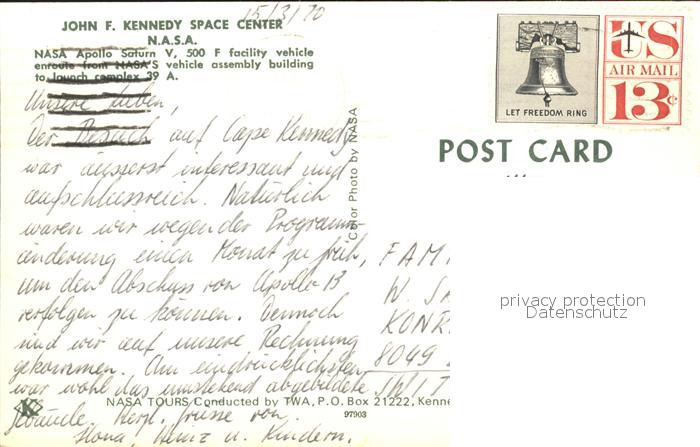 15/3/70
JOHN F. KENNEDY SPACE CENTER
N.A.S.A.
NASA Apollo Saturn V, 500 F facility vehicle
enroute from NASA'S vehicle assembly building
to launch complex 39 A.
Unsere Lieben,
Der Besuch auf Cape Kennedy
war äusserst interessant und
aufschlussreich. Natürlich
waren wir wegen der Programm-
änderung einen Monat zu früh,
um den Abschuss von Apollo 13
verfolgen zu können. Dennoch
sind wir auf unsere Rechnung
gekommen. Am eindrücklichsten
war wohl das umstehend abgebildete
Gebäude. Herzl. Grüsse von
Ilona, Heinz u. Kindern.
NASA TOURS Conducted by TWA, P.O. Box 21222, Kenne
97903
K
Color Photo by NASA
LET FREEDOM RING
US
AIR MAIL
13¢
POST CARD
FAMI
W. SA
KONR
8049
privacy protection
Datenschutz